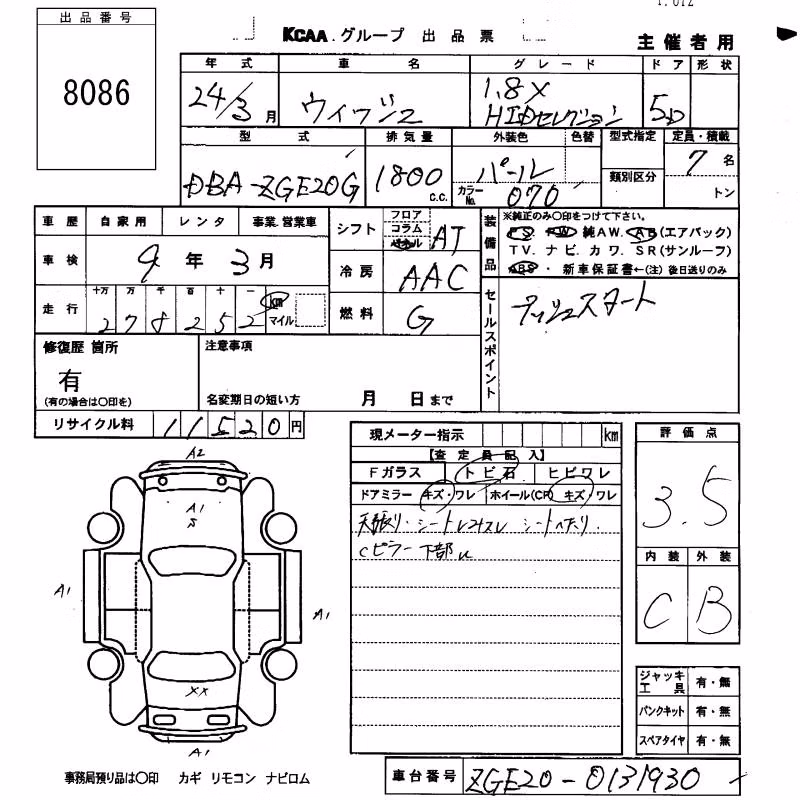 出品番号
8086
KCAA.グループ 出品票
主催者用
年式 車名 グレード ドア 形状
24/3月 ウィッシュ 1.8X HIDセレクション 5D
型式 排気量 外装色 色替 型式指定 定員・積載
DBA-ZGE20G 1800 c.c. パール カラーNo. 070 類別区分 7名 トン
車歴 自家用 レンタ 事業.営業車
車検 9年3月
走行 十万 万 千 百 十 一
278252 km マイル
シフト フロア コラム パネル AT
冷房 AAC
燃料 G
装備品 ※純正のみ〇印をつけて下さい。
PS. PW 純AW. AB(エアバック)
TV. ナビ. カワ. SR(サンルーフ)
ABS. 新車保証書←(注)後日送りのみ
セールスポイント プッシュスタート
修復歴 箇所
有
(有の場合は〇印を)
注意事項
名変期日の短い方 月 日まで
リサイクル料 11520円
現メーター指示 km
【査定員記入】
Fガラス トビ石 ヒビワレ
ドアミラー キズ・ワレ ホイール(CP) キズ・ワレ
天張り・シート シートヘタリ.
Cピラー下部U
評価点
3.5
内装 外装
C B
ジャッキ工具 有・無
パンクキット 有・無
スペアタイヤ 有・無
A2
A1
S
A1
A1
XX
A1
事務局預り品は〇印 カギ リモコン ナビロム
車台番号 ZGE20-0131930